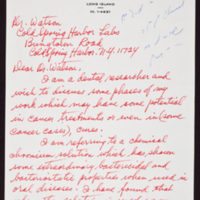 LONG ISLAND
Dr. Watson
Cold Spring Harbor Labs
Bungtown Road
Cold Spring Harbor, N.Y. 11724
Dear Dr. Watson,
I am a dentist, researcher and
wish to discuss some phases of my
work which may have some potential
in cancer treatments or even in (some
cancer cases), cures.
I am referring to a chemical
chromium solution which has shown
some extraordinary bactericidal and
bacteriostatic properties when used in
oral diseases. I have found that